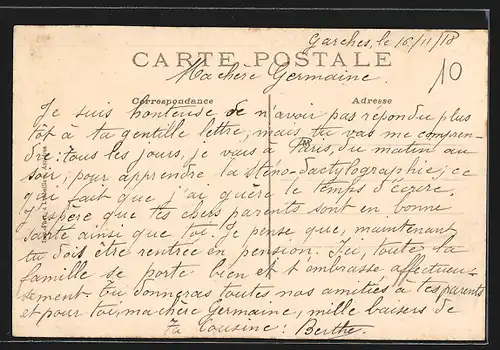 Garches, le 16/11/18
CARTE POSTALE
Ma chère Germaine.
10
Correspondance Adresse
Je suis honteuse de n'avoir pas répondu plus
tôt à ta gentille lettre, mais tu vas me compren-
dre : tous les jours, je vais à Paris, du matin au
soir, pour apprendre la sténo-dactylographie ; ce
qui fait que j'ai guère le temps d'écrire.
J'espère que tes chers parents sont en bonne
santé ainsi que toi. Je pense que, maintenant
tu dois être rentrée en pension. Ici, toute la
famille se porte bien et t'embrasse affectueu-
sement. Tu donneras toutes nos amitiés à tes parents
et pour toi, ma chère Germaine, mille baisers de
Ta Cousine : Berthe.